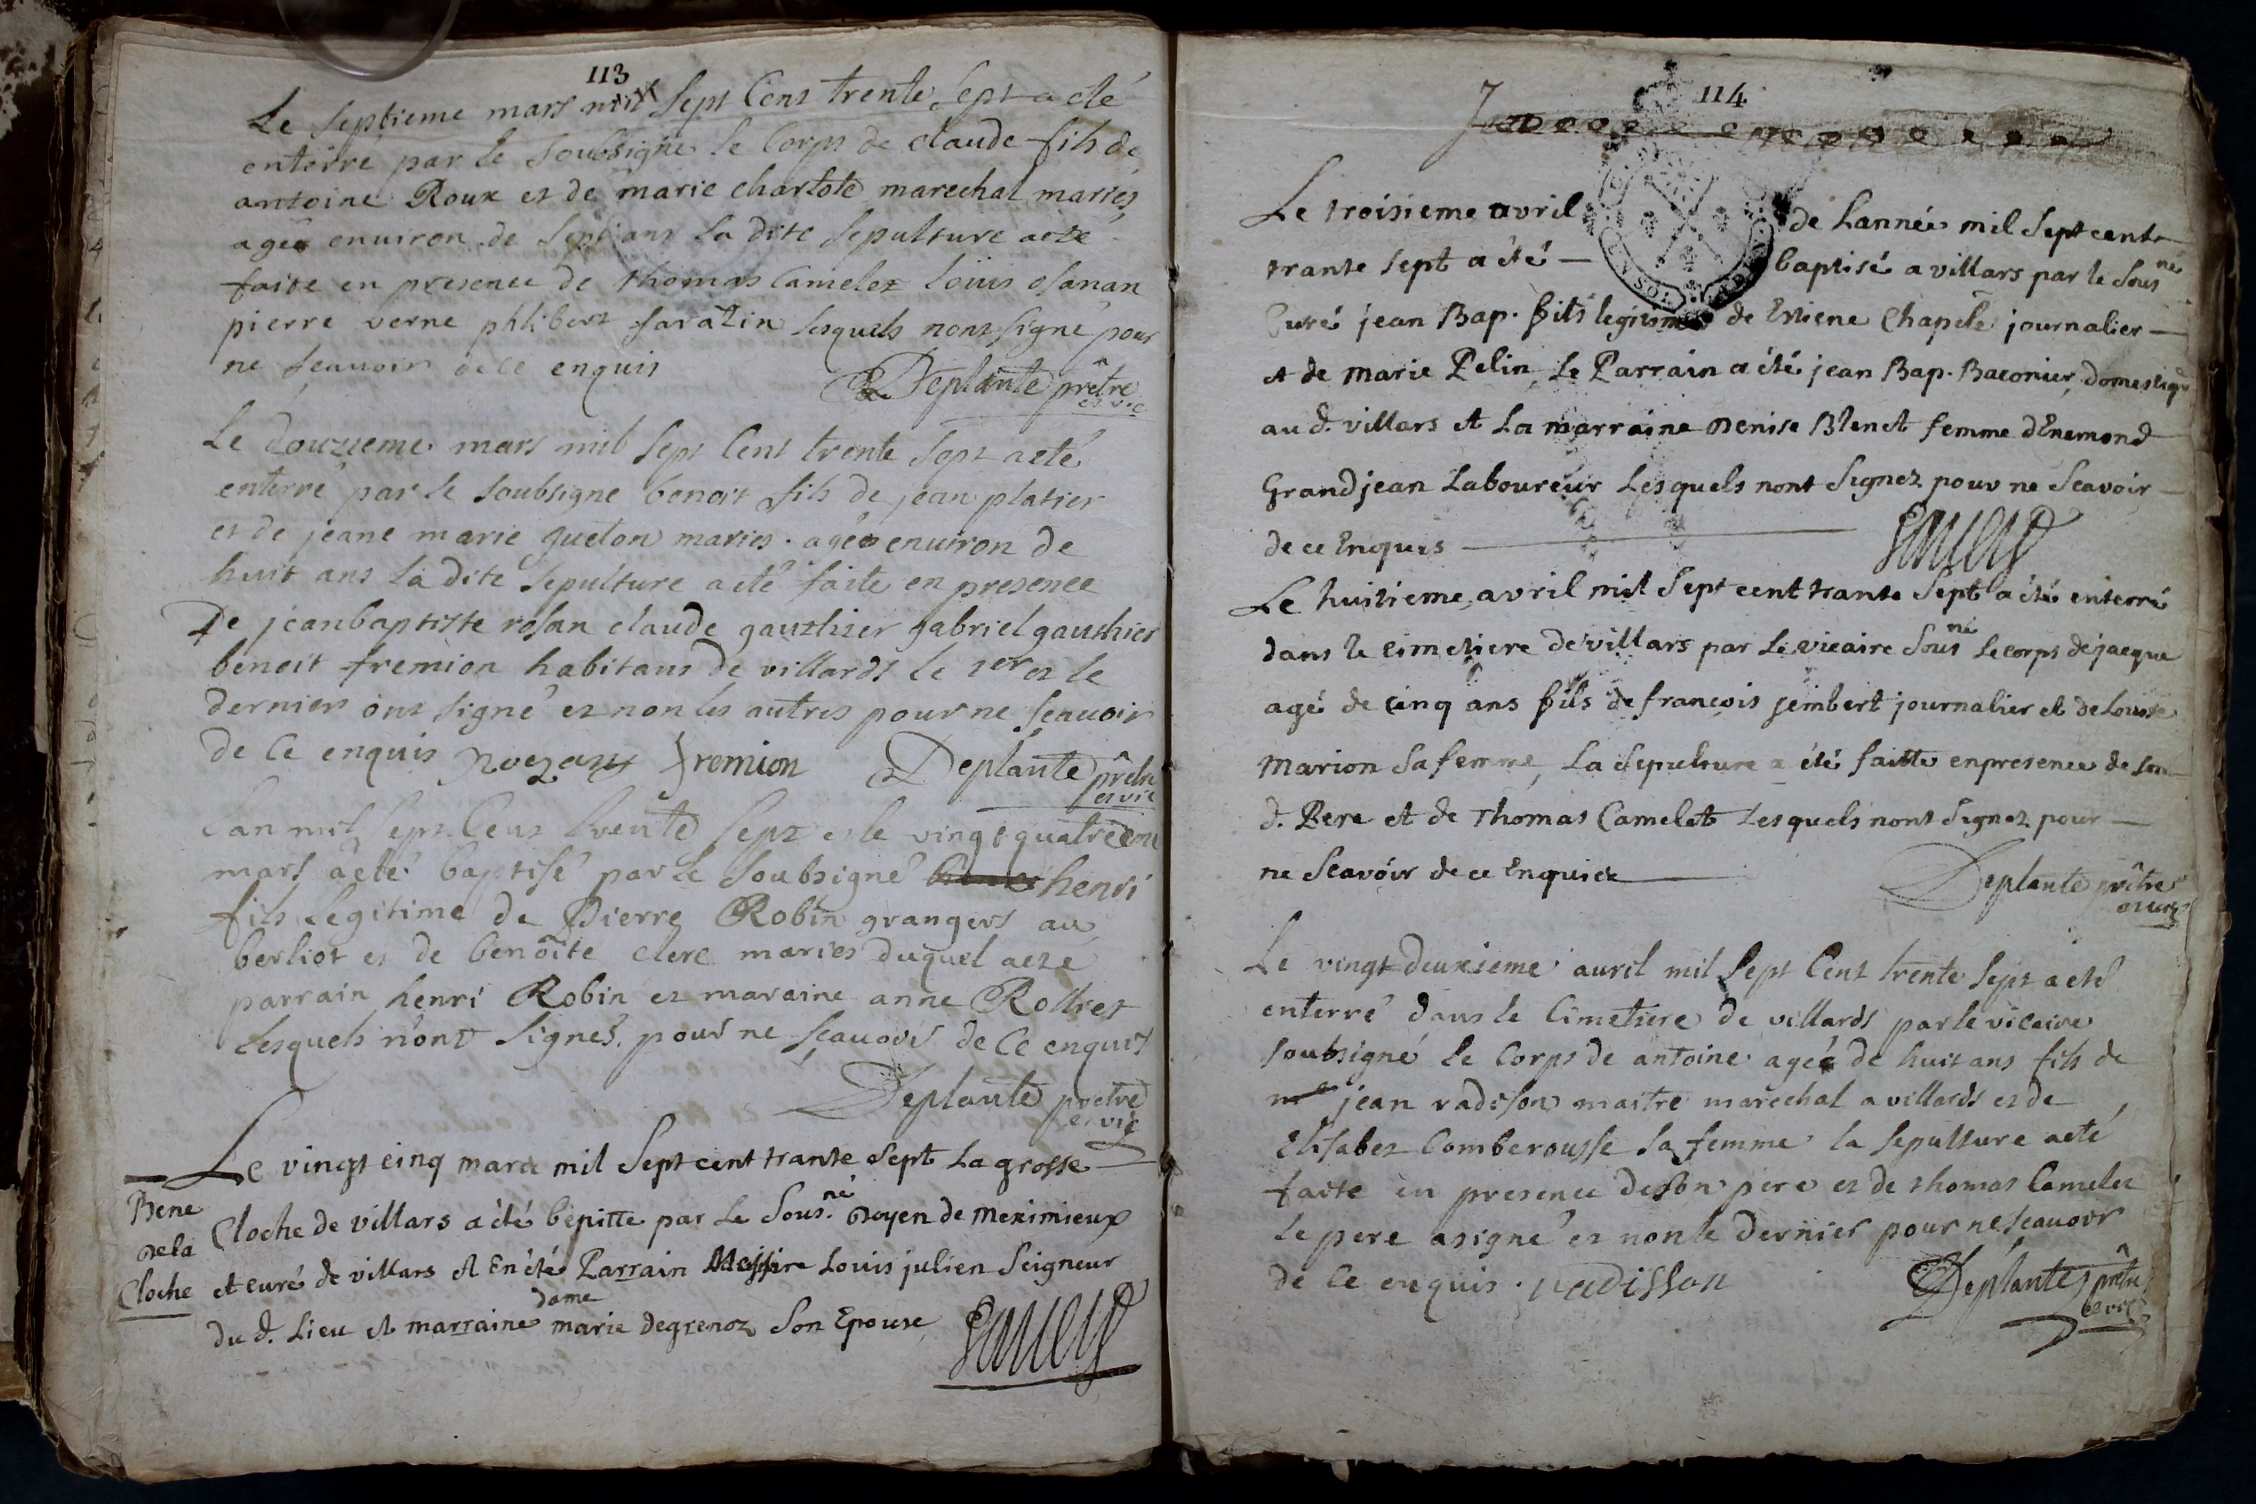 113
Le septieme mars mil sept Cent trente sept a eté
enterré par le soubsigne le Corps de claude fils de
antoine Roux et de marie charlote marechal maries
agée enuiron de sept ans la dite sepulture aeté
faite en presence de thomas Camelet loüis osanan
pierre verne phlibert saraZin lesquels nont signé pour
ne sçauoir de ce enquis
Deplante prêtre
et vic
Le douzieme mars mil sept Cent trente sept aeté
enterré par le soubsigne benoit fils de jean platier
et de jeane marie gueton maries . agée enuiron de
huit ans la dite sepulture a eté faite en presence
De jeanbaptiste rosan claude gauthier gabriel gauthier
benoit fremion habitans de villards le 1er et le
dernier ont signé et non les autres pour ne sçauoir
de Ce enquis Roezant fremion Deplante prêtre
et vic
Lan mil sept Cent trente sept et le vingt quatreeme
mars aeté baptisé par le soubsigné henri
fils legitime de Pierre Robin grangers au
berliot et de benoîte clerc maries duquel aeté
parrain henri Robin et maraine anne Rollret
Lesquels n'ont signés pour ne sçauoir de Ce enquis
Deplante pretre
et vic
Le vingt cinq mars mil Sept cent trante Sept La grosse
Bene
de la
Cloche
Cloche de villars a été bénitte par Le Sous.né Doyen de meximieux
et curé de villars et En été Parrain Messire Louis julien Seigneur
du d. Lieu et marraine dame marie degrenoz Son Epouse
114
Le troisieme avril de Lannée mil Sept cent
trante Sept a été baptisé a villars par le Sous né
Curé jean Bap. fils legitime de Estiene Chapele journalier
et de marie Pelin, Le Parrain a été jean Bap. Baconier, domestique
au d. villars et La marraine Denise Blenet femme dEnemond
Grandjean Laboureur Lesquels nont Signez pour ne Scavoir
de ce Enquis
Le huitieme avril mil Sept cent trante Sept a été enterré
dans le cimetiere de villars par Le vicaire Sous né Le corps de jacque
agé de cinq ans fils de françois jembert journalier et de Louise
Marion Sa femme, La Sepulture a été faitte en presence de Son
d. Pere et de Thomas Camelet Lesquels nont Signez pour
ne Scavoir de ce Enquis
Deplante prêtre
et vic
Le vingt deuxieme auril mil sept Cent trente sept a eté
enterré dans le Cimetiere de villards par le vicaire
soubsigné le Corps de antoine agée de huit ans fils de
jean radison maitre marechal a villards et de
Elisabet Comberousse sa femme la sepulture aeté
faite en presence de son pere et de thomas Camelet
le pere a signé et non le dernier pour ne scauoir
de Ce enquis . radisson
Deplante prêtre
et vic